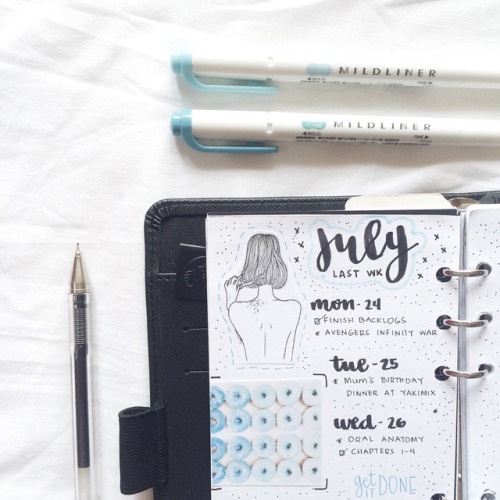 MILDLINER
BOLD
MILDLINER
BOLD
FINE
July
LAST WK
mon-24
FINISH BACKLOGS
AVENGERS INFINITY WAR
tue-25
MUM'S BIRTHDAY
DINNER AT YAKIMIX
wed-26
ORAL ANATOMY
CHAPTERS 1-4
get DONE